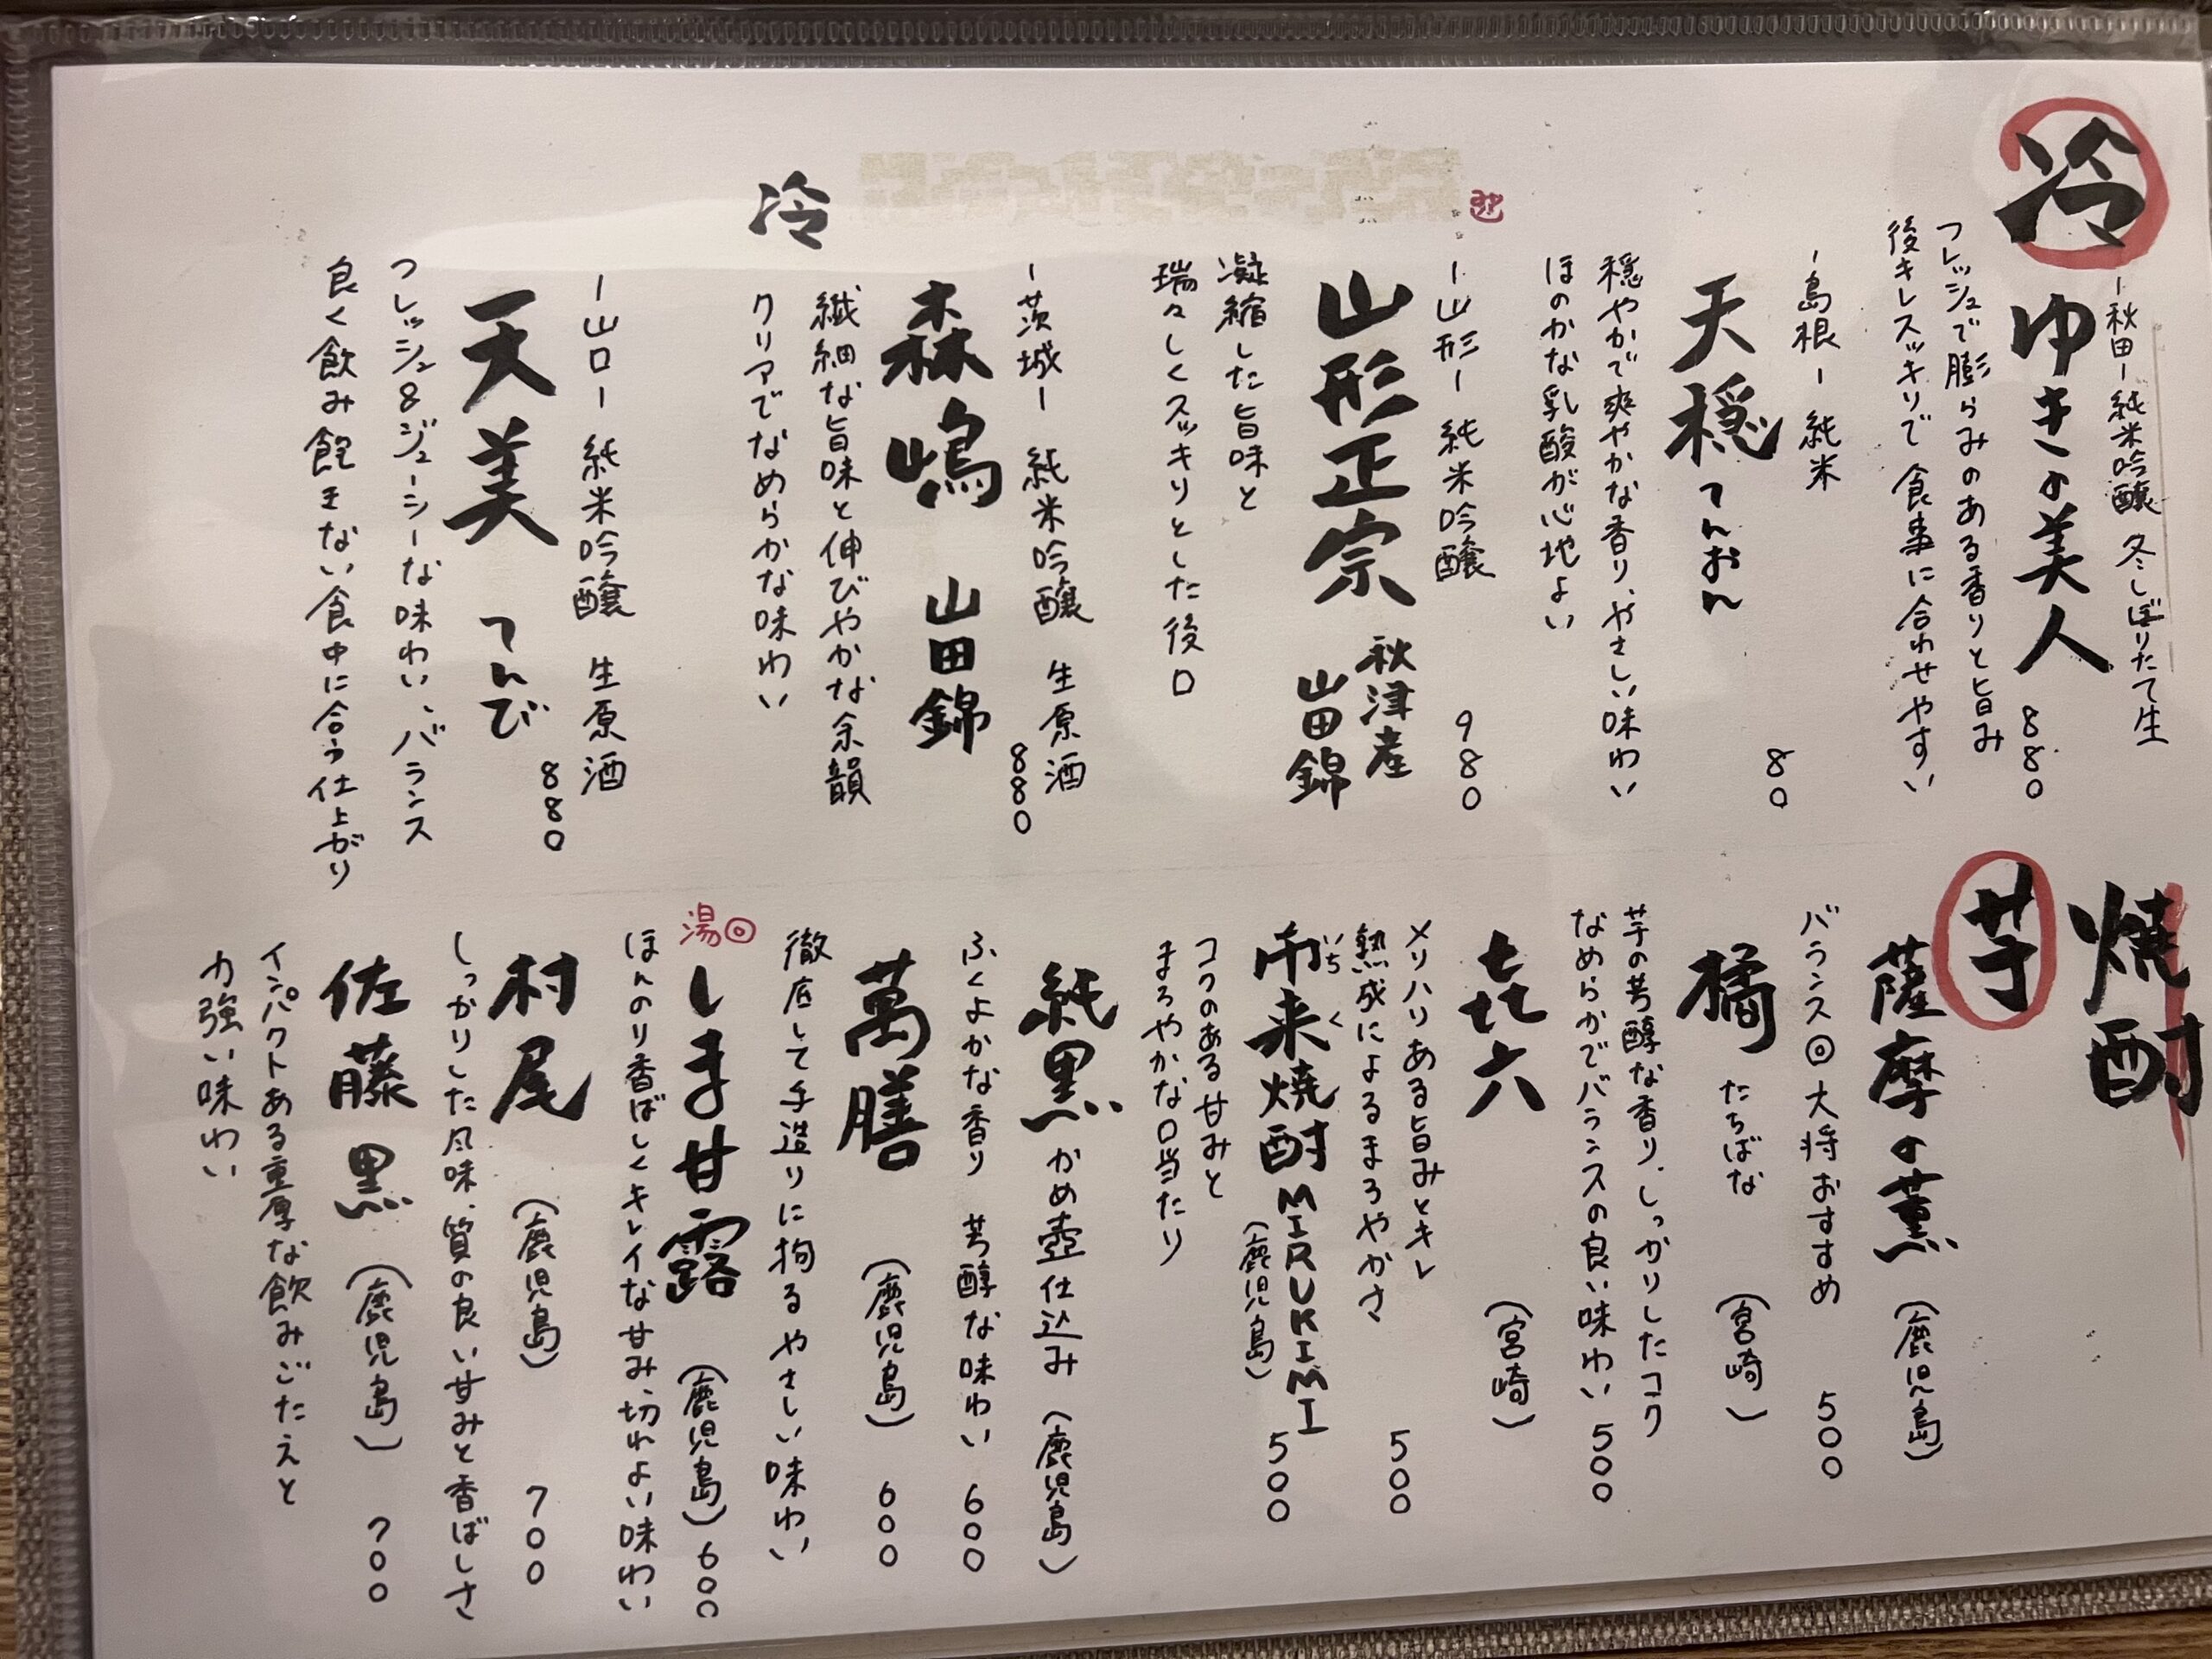 冷
ー秋田ー純米吟醸 冬しぼりたて生
ゆきの美人 880
フレッシュで膨らみのある香りと旨み
後キレスッキリで食事に合わせやすい
ー島根ー 純米
80
天穏 てんおん
穏やかで爽やかな香り、やさしい味わい
ほのかな乳酸が心地よい
ー山形ー 純米吟醸 980
山形正宗 秋津産
山田錦
凝縮した旨味と
瑞々しくスッキリとした後口
ー茨城ー 純米吟醸 生原酒
880
森嶋 山田錦
繊細な旨味と伸びやかな余韻
冷
クリアでなめらかな味わい
ー山口ー 純米吟醸 生原酒
880
天美 てんび
フレッシュ&ジューシーな味わい、バランス
良く飲み飽きない食中に合う仕上がり
焼酎
芋
薩摩の薫 (鹿児島)
バランス◎大将おすすめ 500
橘 たちばな (宮崎)
芋の芳醇な香り、しっかりしたコク
なめらかでバランスの良い味わい 500
㐂六 (宮崎)
メリハリある旨みとキレ
500
熟成によるまろやかさ
いちく
市来焼酎MIRUKIMI
(鹿児島) 500
コクのある甘みと
まろやかな口当たり
純黒 かめ壺仕込み (鹿児島)
ふくよかな香り 芳醇な味わい 600
萬膳 (鹿児島) 600
徹底して手造りに拘るやさしい味わい
湯◎
しま甘露 (鹿児島) 600
ほんのり香ばしくキレイな甘み、切れよい味わい
村尾 (鹿児島) 700
しっかりした風味、質の良い甘みと香ばしさ
佐藤黒 (鹿児島) 700
インパクトある重厚な飲みごたえと
力強い味わい